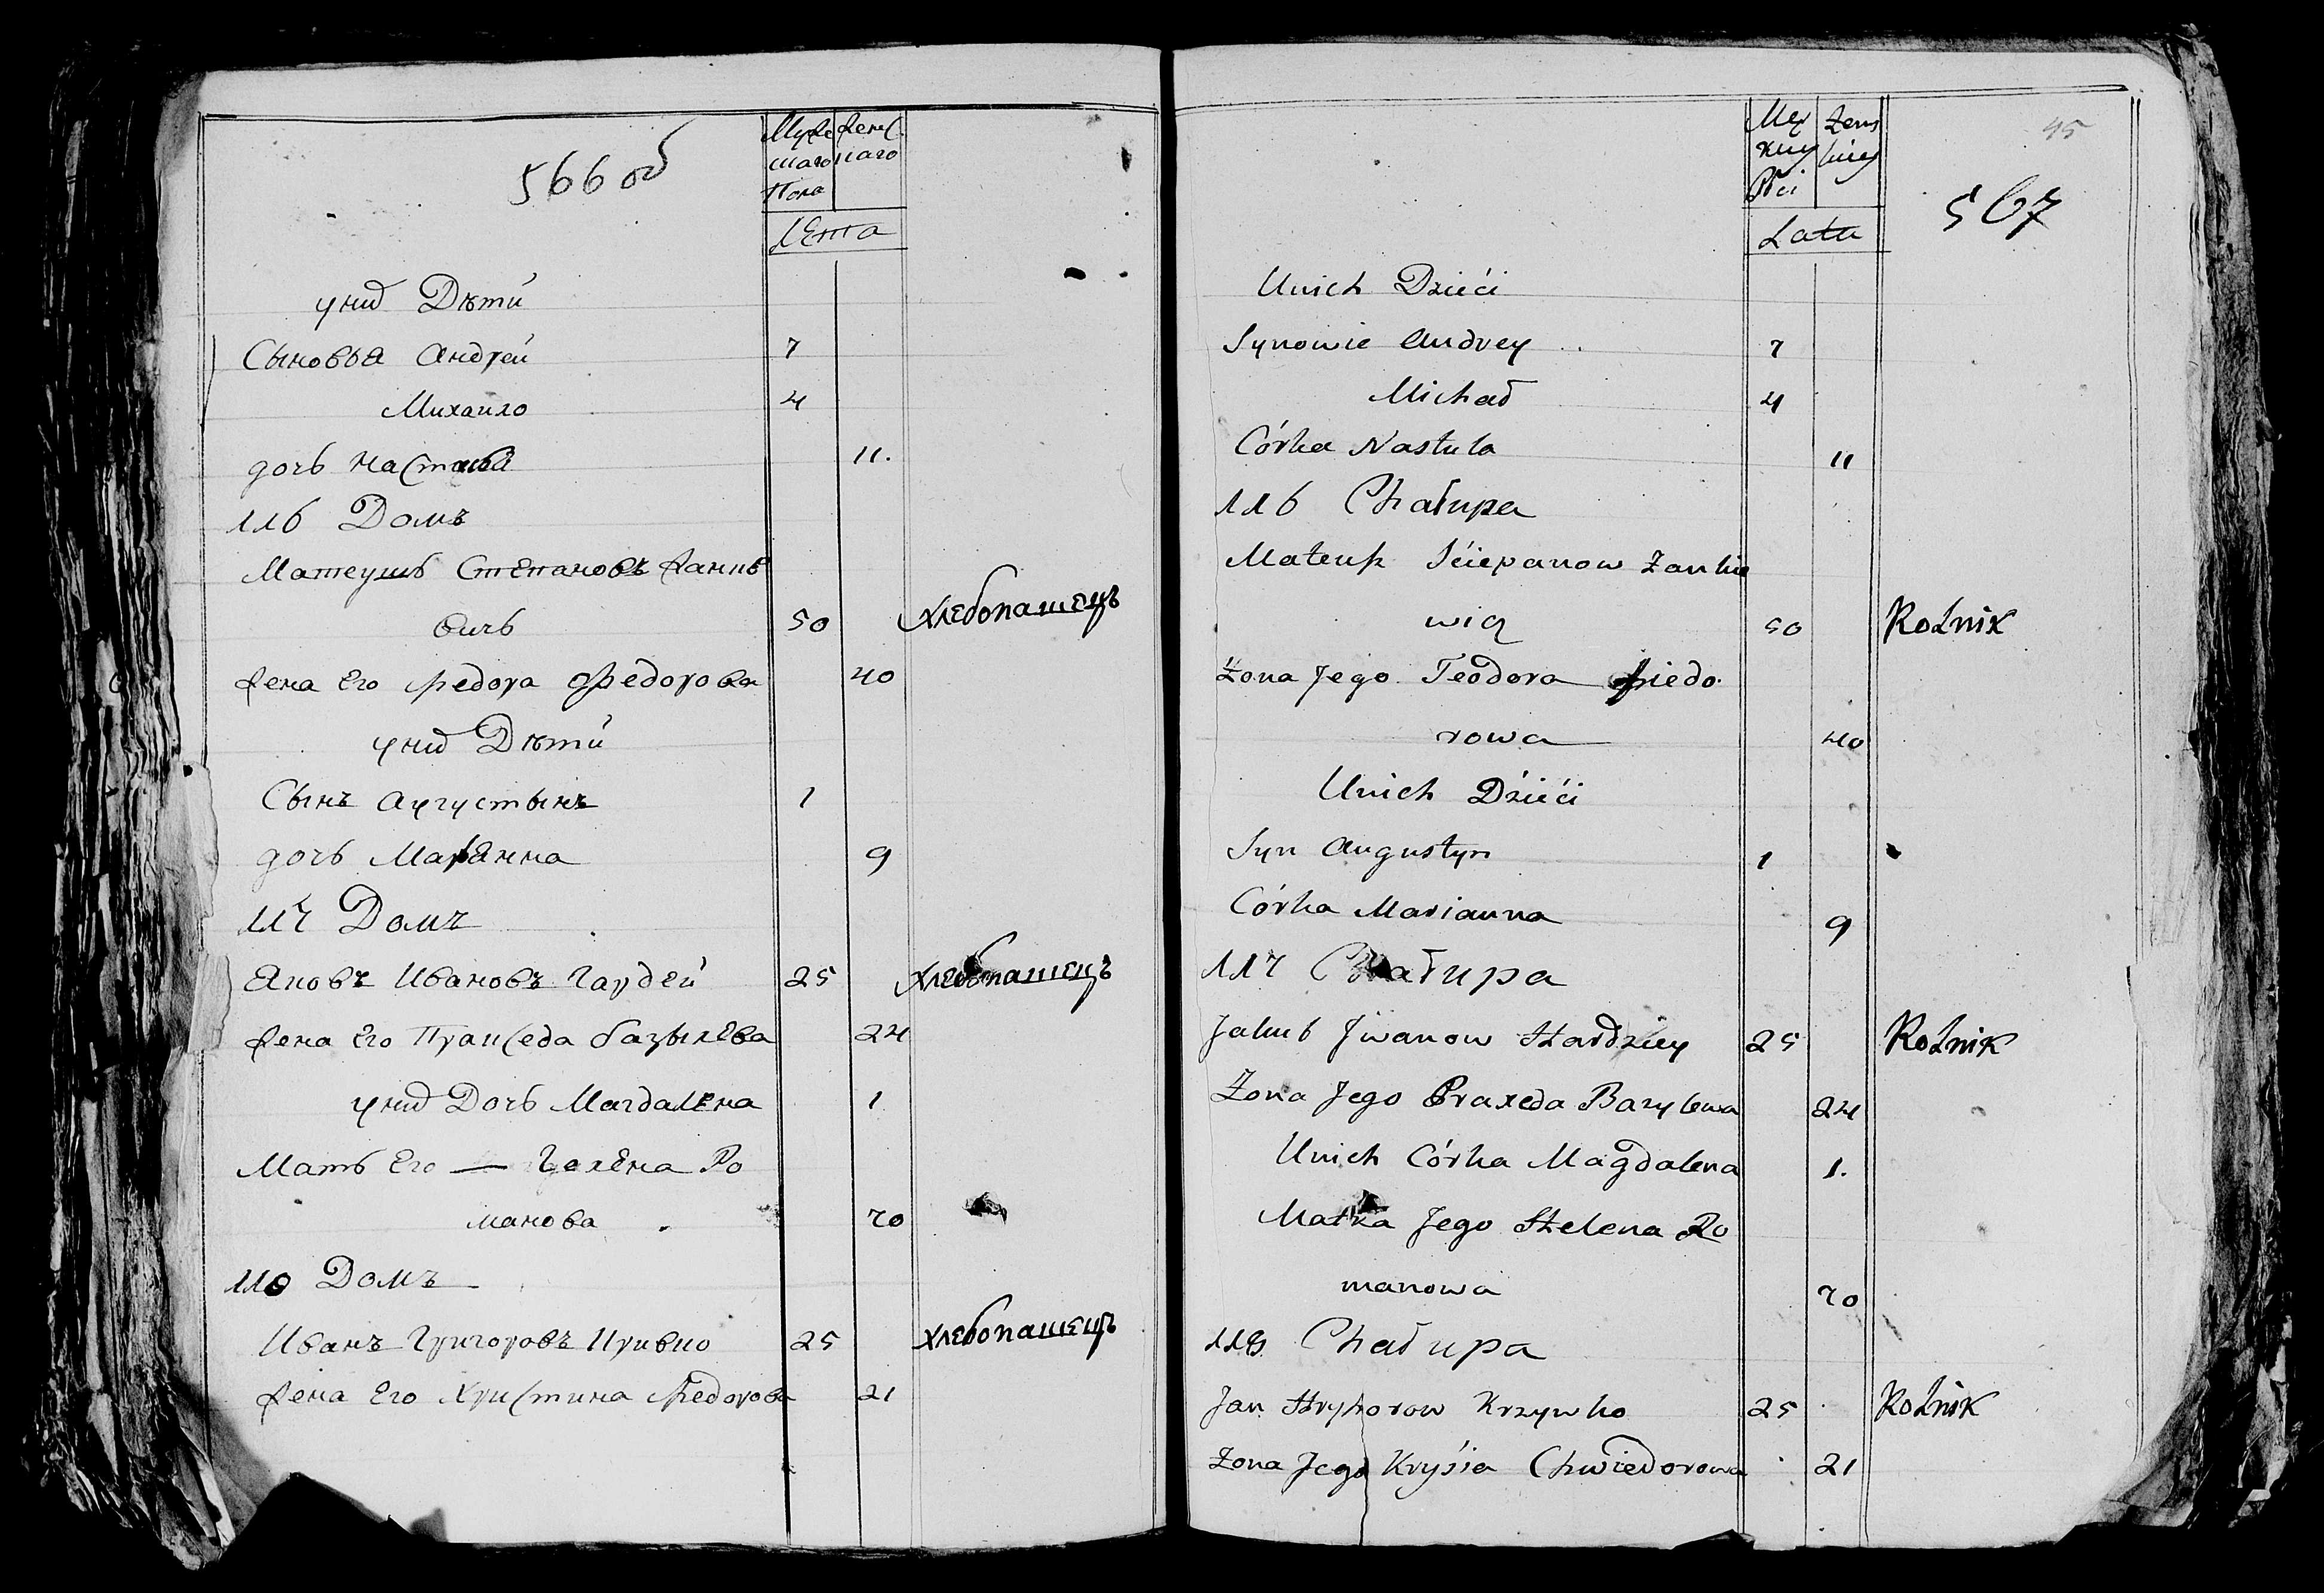 566 об
Муже
скаго
Пола
женс
каго
Лѣта
у них Дѣти
Сыновья Андрей 7
Михаило 4
дочь Настаця 11.
116 Домъ
Матеушъ Степановъ Жанке
вичъ 50 Хлебопашецъ
жена Его Федора Федорова 40
у них Дѣти
Сынъ Аугустынъ 1
дочь Марянна 9
117 Домъ
Яковъ Ивановъ Гардей 25 Хлебопашецъ
жена Его Праксeда Базылева 24
у них Дочь Магдалена 1
Мать Его — Гелена Ро
манова 70
118 Домъ
Иванъ Григоровъ Кривко 25 Хлебопашецъ
жена Его Христина Федорова 21
45
567
Męz
kiey
Płci
Zens
kiey
Lata
U nich Dzieći
Synowie Andrey 7
Michał 4
Córka Nastula 11
116 Chałupa
Mateusz Sćiepanow Zankie
wicz 50 Rolnik
Żona Jego Teodora Fiedo
rowa 40
U nich Dzieći
Syn Augustyn 1
Córka Marianna 9
117 Chałupa
Jakub Jwanow Hardziey 25 Rolnik
Żona Jego Praxeda Bazylewa 24
U nich Córka Magdalena 1.
Matka Jego Helena Ro
manowa 70
118 Chałupa
Jan Hryhorow Krzywko 25 Rolnik
Żona Jego Kryśia Chwiedorowa 21